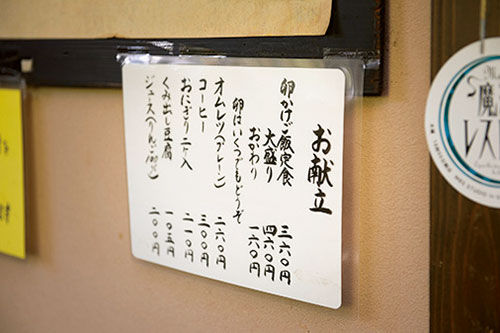 お献立
卵かけご飯定食 三六〇円
大盛り 四六〇円
おかわり 一六〇円
卵はいくつでもどうぞ
オムレツ(プレーン) 二六〇円
コーヒー 三〇〇円
おにぎり二ヶ入 二一〇円
くみ出し豆腐 一〇五円
ジュース(りんご) 二〇〇円
魔
レス